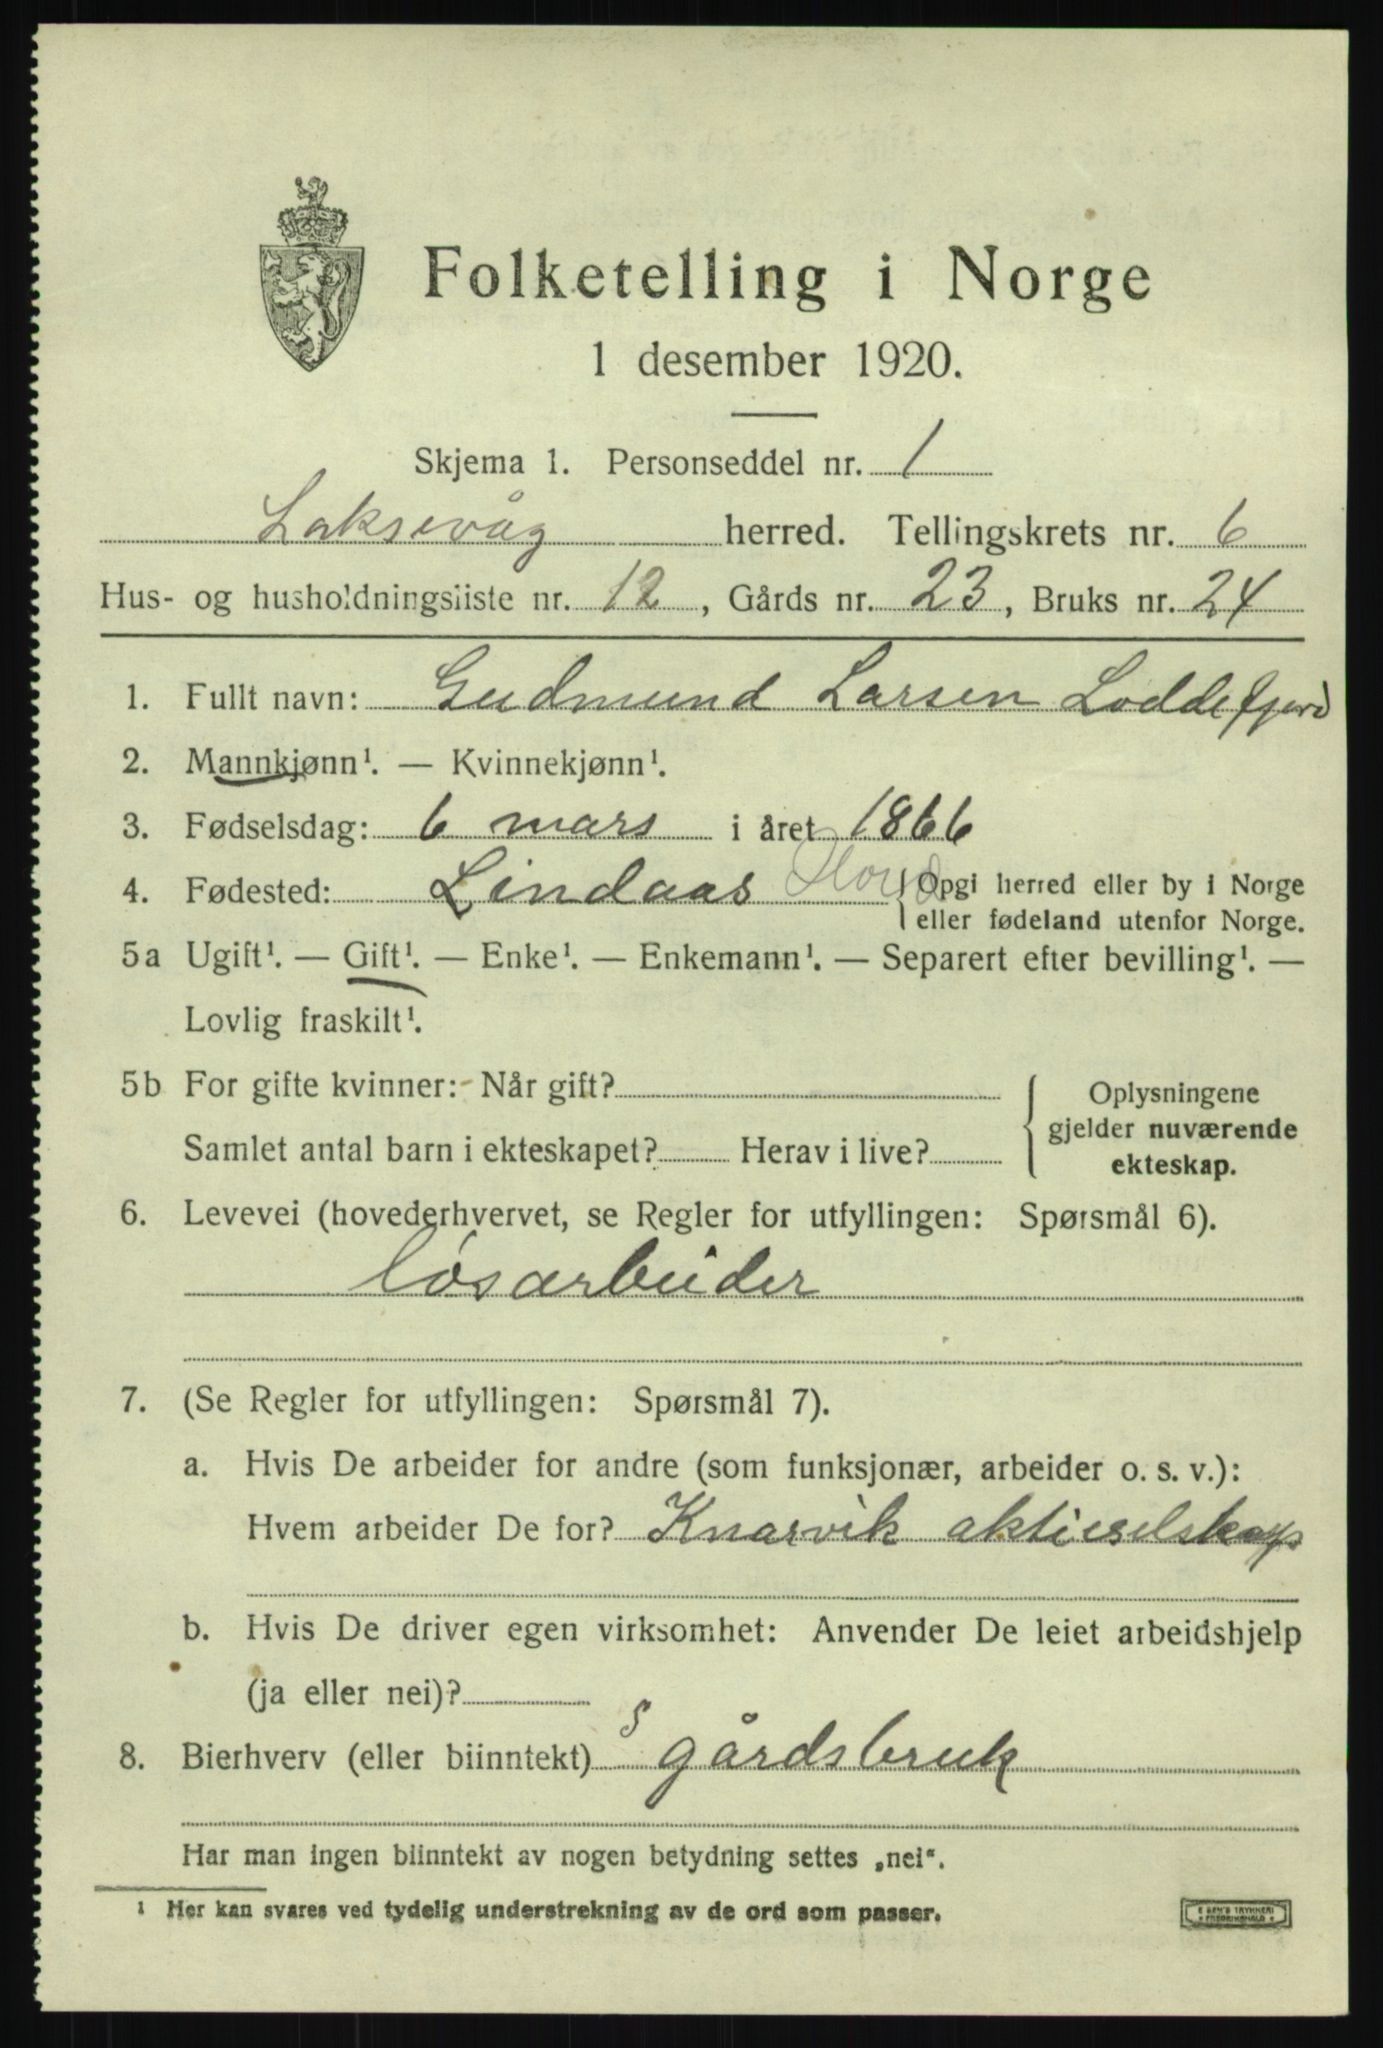 Folketelling i Norge
1 desember 1920.
Skjema 1. Personseddel nr. 1
Laksevåg herred. Tellingskrets nr. 6
Hus- og husholdningsliste nr. 12, Gårds nr. 23, Bruks nr. 24
1. Fullt navn: Gudmund Larsen Loddefjord
2. Mannkjønn¹. — Kvinnekjønn¹.
3. Fødselsdag: 6 mars i året 1866
4. Fødested: Lindaas Hord {Opgi herred eller by i Norge
eller fødeland utenfor Norge.
5a Ugift¹. — Gift¹. — Enke¹. — Enkemann¹. — Separert efter bevilling¹. —
Lovlig fraskilt¹.
5b For gifte kvinner: Når gift?
Samlet antal barn i ekteskapet? Herav i live?
Oplysningene
gjelder nuværende
ekteskap.
6. Levevei (hovederhvervet, se Regler for utfyllingen: Spørsmål 6).
løsarbeider
7. (Se Regler for utfyllingen: Spørsmål 7).
a. Hvis De arbeider for andre (som funksjonær, arbeider o. s. v.):
Hvem arbeider De for? Knarvik aktieselskap
b. Hvis De driver egen virksomhet: Anvender De leiet arbeidshjelp
(ja eller nei)?
8. Bierhverv (eller biinntekt) S gårdsbruk
Har man ingen biinntekt av nogen betydning settes „nei“.
¹ Her kan svares ved tydelig understrekning av de ord som passer.